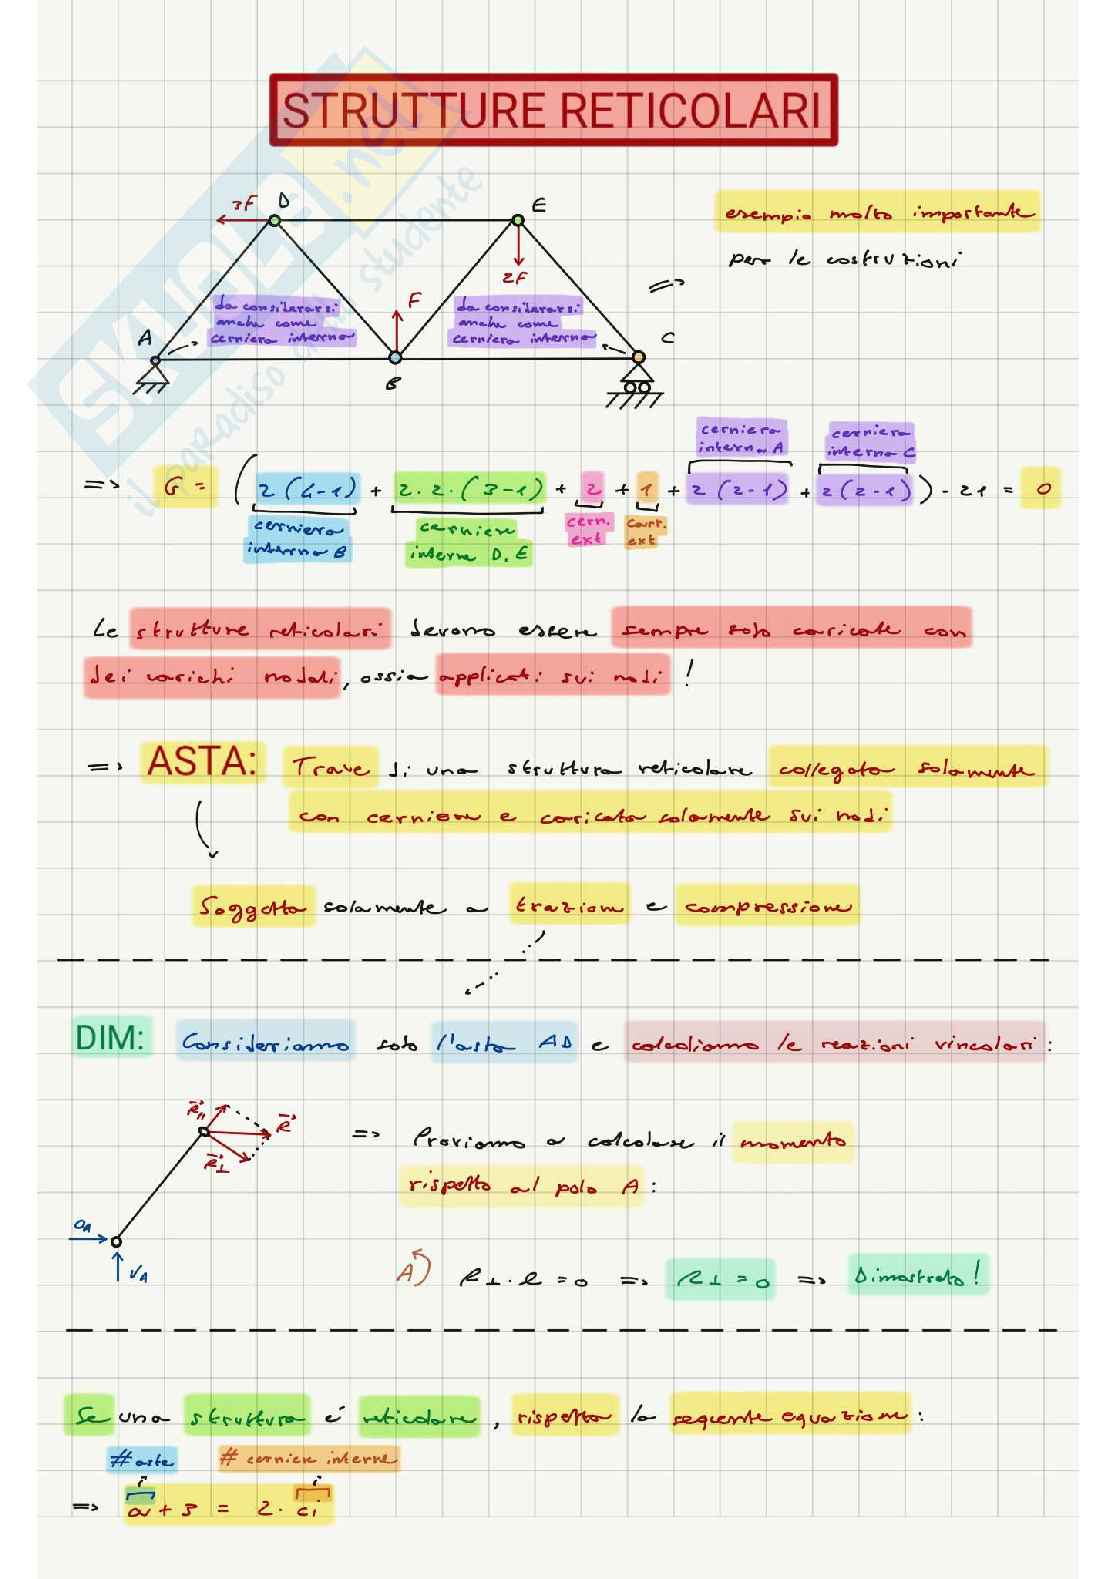 STRUTTURE RETICOLARI
SKUOLA.net
il paradiso dello studente
3F D E
esempio molto importante
per le costruzioni
2F
F
da considerarsi
anche come
cerniera interna
da considerarsi
anche come
cerniera interna
A B C
cerniera
interna A
cerniera
interna C
=> G = ( 2 (4-1) + 2·2·(3-1) + 2 + 1 + 2 (2-1) + 2 (2-1) ) - 21 = 0
cerniera
interna B
cerniere
interne D, E
cern.
ext
carr.
ext
Le strutture reticolari devono essere sempre solo caricate con
dei carichi nodali, ossia applicati sui nodi!
=> ASTA: Trave di una struttura reticolare collegata solamente
con cerniere e caricata solamente sui nodi
Soggetta solamente a trazione e compressione
DIM: Consideriamo solo l'asta AD e calcoliamo le reazioni vincolari:
R⃗// R⃗ R⃗⊥
=> Proviamo a calcolare il momento
rispetto al polo A:
OA VA
A) R⊥·l = 0 => R⊥ = 0 => Dimostrato!
Se una struttura é reticolare, rispetta la seguente equazione:
#aste # cerniere interne
=> a + 3 = 2·ci